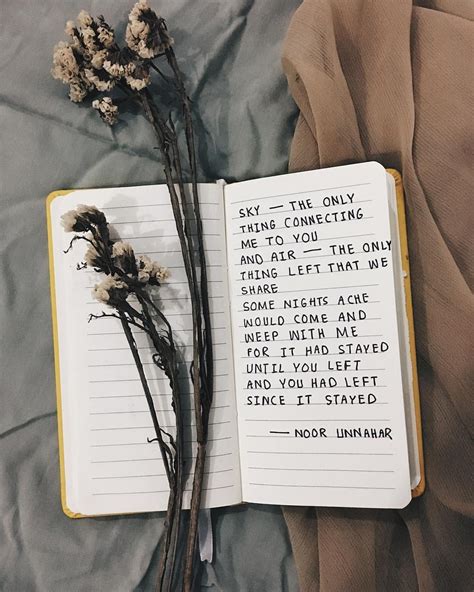 SKY — THE ONLY
THING CONNECTING
ME TO YOU
AND AIR — THE ONLY
THING LEFT THAT WE
SHARE
SOME NIGHTS ACHE
WOULD COME AND
WEEP WITH ME
FOR IT HAD STAYED
UNTIL YOU LEFT
AND YOU HAD LEFT
SINCE IT STAYED
— NOOR UNNAHAR